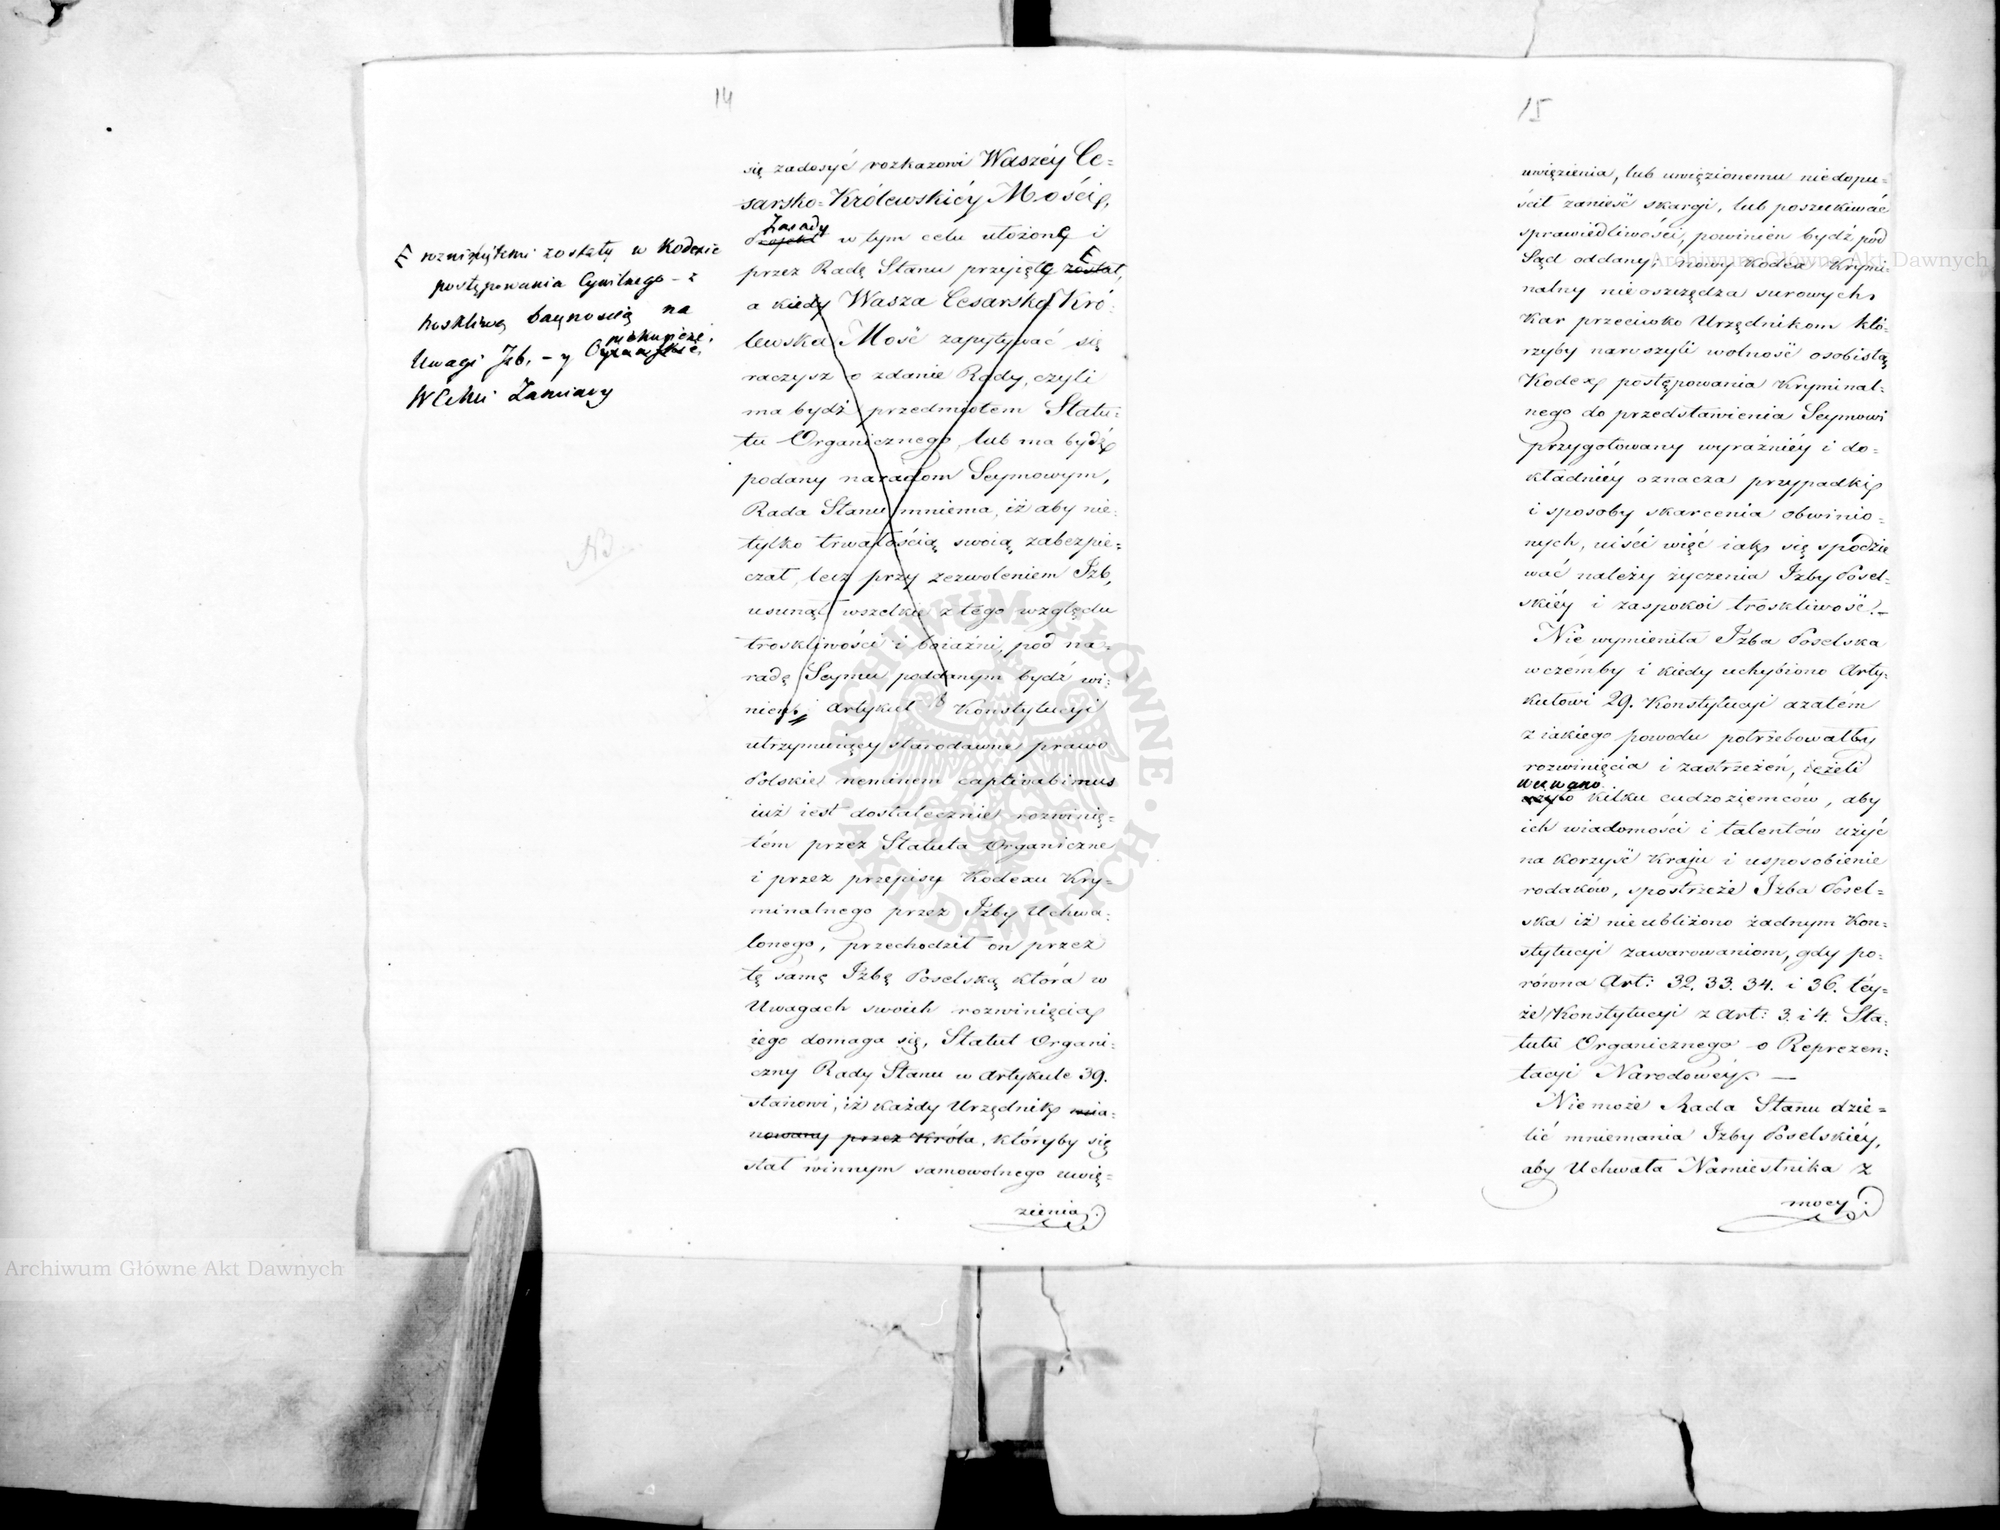 14
się zadosyć rozkazowi Waszéy Ce=
sarsko=Królewskiéy Mości,
Zasady
Projekt w tym celu ułożone i
przez Radę Stanu przyięte został,
a kiedy Wasza Cesarsko Kró=
lewska Mość zapytywać się
raczysz o zdanie Rady, czyli
ma bydź przedmiotem Statu=
tu Organicznego, lub ma bydź
podany naradom Seymowym,
Rada Stanu mniema, iż aby nie=
tylko trwałością swoią zabezpie=
czał, lecz przy zezwoleniem Izb,
usunął wszelkie z tego względu
troskliwości i boiaźni, pod na=
radę Seymu poddanym bydź wi=
nien; Artykuł 18 Konstytucyi
utrzymuiący starodawne prawo
Polskie neminem captivabimus
iuż iest dostatecznie rozwinię=
tém przez Statuta Organiczne
i przez przepisy Kodexu Kry=
minalnego przez Izby Uchwa=
lonego, przechodził on przez
tę samę Izbę Poselską która w
Uwagach swoich rozwinięcia
iego domaga się, Statut Organi=
czny Rady Stanu w Artykule 39.
stanowi, iż każdy Urzędnik mia=
nowany przez Króla, któryby się
stał winnym samowolnego uwię=
zienia
E rozwiniętemi zostały w Kodexie
postępowania Cywilnego – z
troskliwą bacznością na
Uwagi Izb. – y
W C Mci Zamiary
NB
15
uwięzienia, lub uwięzionemu niedopu=
ścił zanieść skargi, lub poszukiwać
sprawiedliwości, powinien bydź pod
Sąd oddany; nowy Kodex Krymi=
nalny nieoszczędza surowych
kar przeciwko Urzędnikom któ=
rzyby naruszyli wolność osobistą
Kodex postępowania Kryminal=
nego do przedstawienia Seymowi
przygotowany wyraźniéy i do=
kładniéy oznacza przypadki
i sposoby skarcenia obwinio=
nych, uiści więc iak się spodzie
wać należy życzenia Izby Posel=
skiéy i zaspokoi troskliwość. –
Nie wymieniła Izba Poselska
wczémby i kiedy uchybiono Arty=
kułowi 29. Konstytucyi azatém
z iakiego powodu potrzebowałby
rozwinięcia i zastrzeżeń, ieżeli
wezwano
użyto kilku cudzoziemców, aby
ich wiadomości i talentów użyć
na korzyść Kraju i usposobienie
rodaków, spostrzeże Izba Posel=
ska iż nie ubliżono żadnym Kon=
stytucyi zawarowaniom, gdy po=
równa Art: 32. 33. 34. i 36. téy=
że Konstytucyi z Art: 3. i 4. Sta=
tutu Organicznego o Reprezen=
tacyi Narodowéy. –
Niemoże Rada Stanu dzie=
lić mniemania Izby Poselskiéy,
aby Uchwała Namiestnika z
mocy
Archiwum Główne Akt Dawnych
Archiwum Główne Akt Dawnych
ARCHIWUM GŁÓWNE AKT DAWNYCH